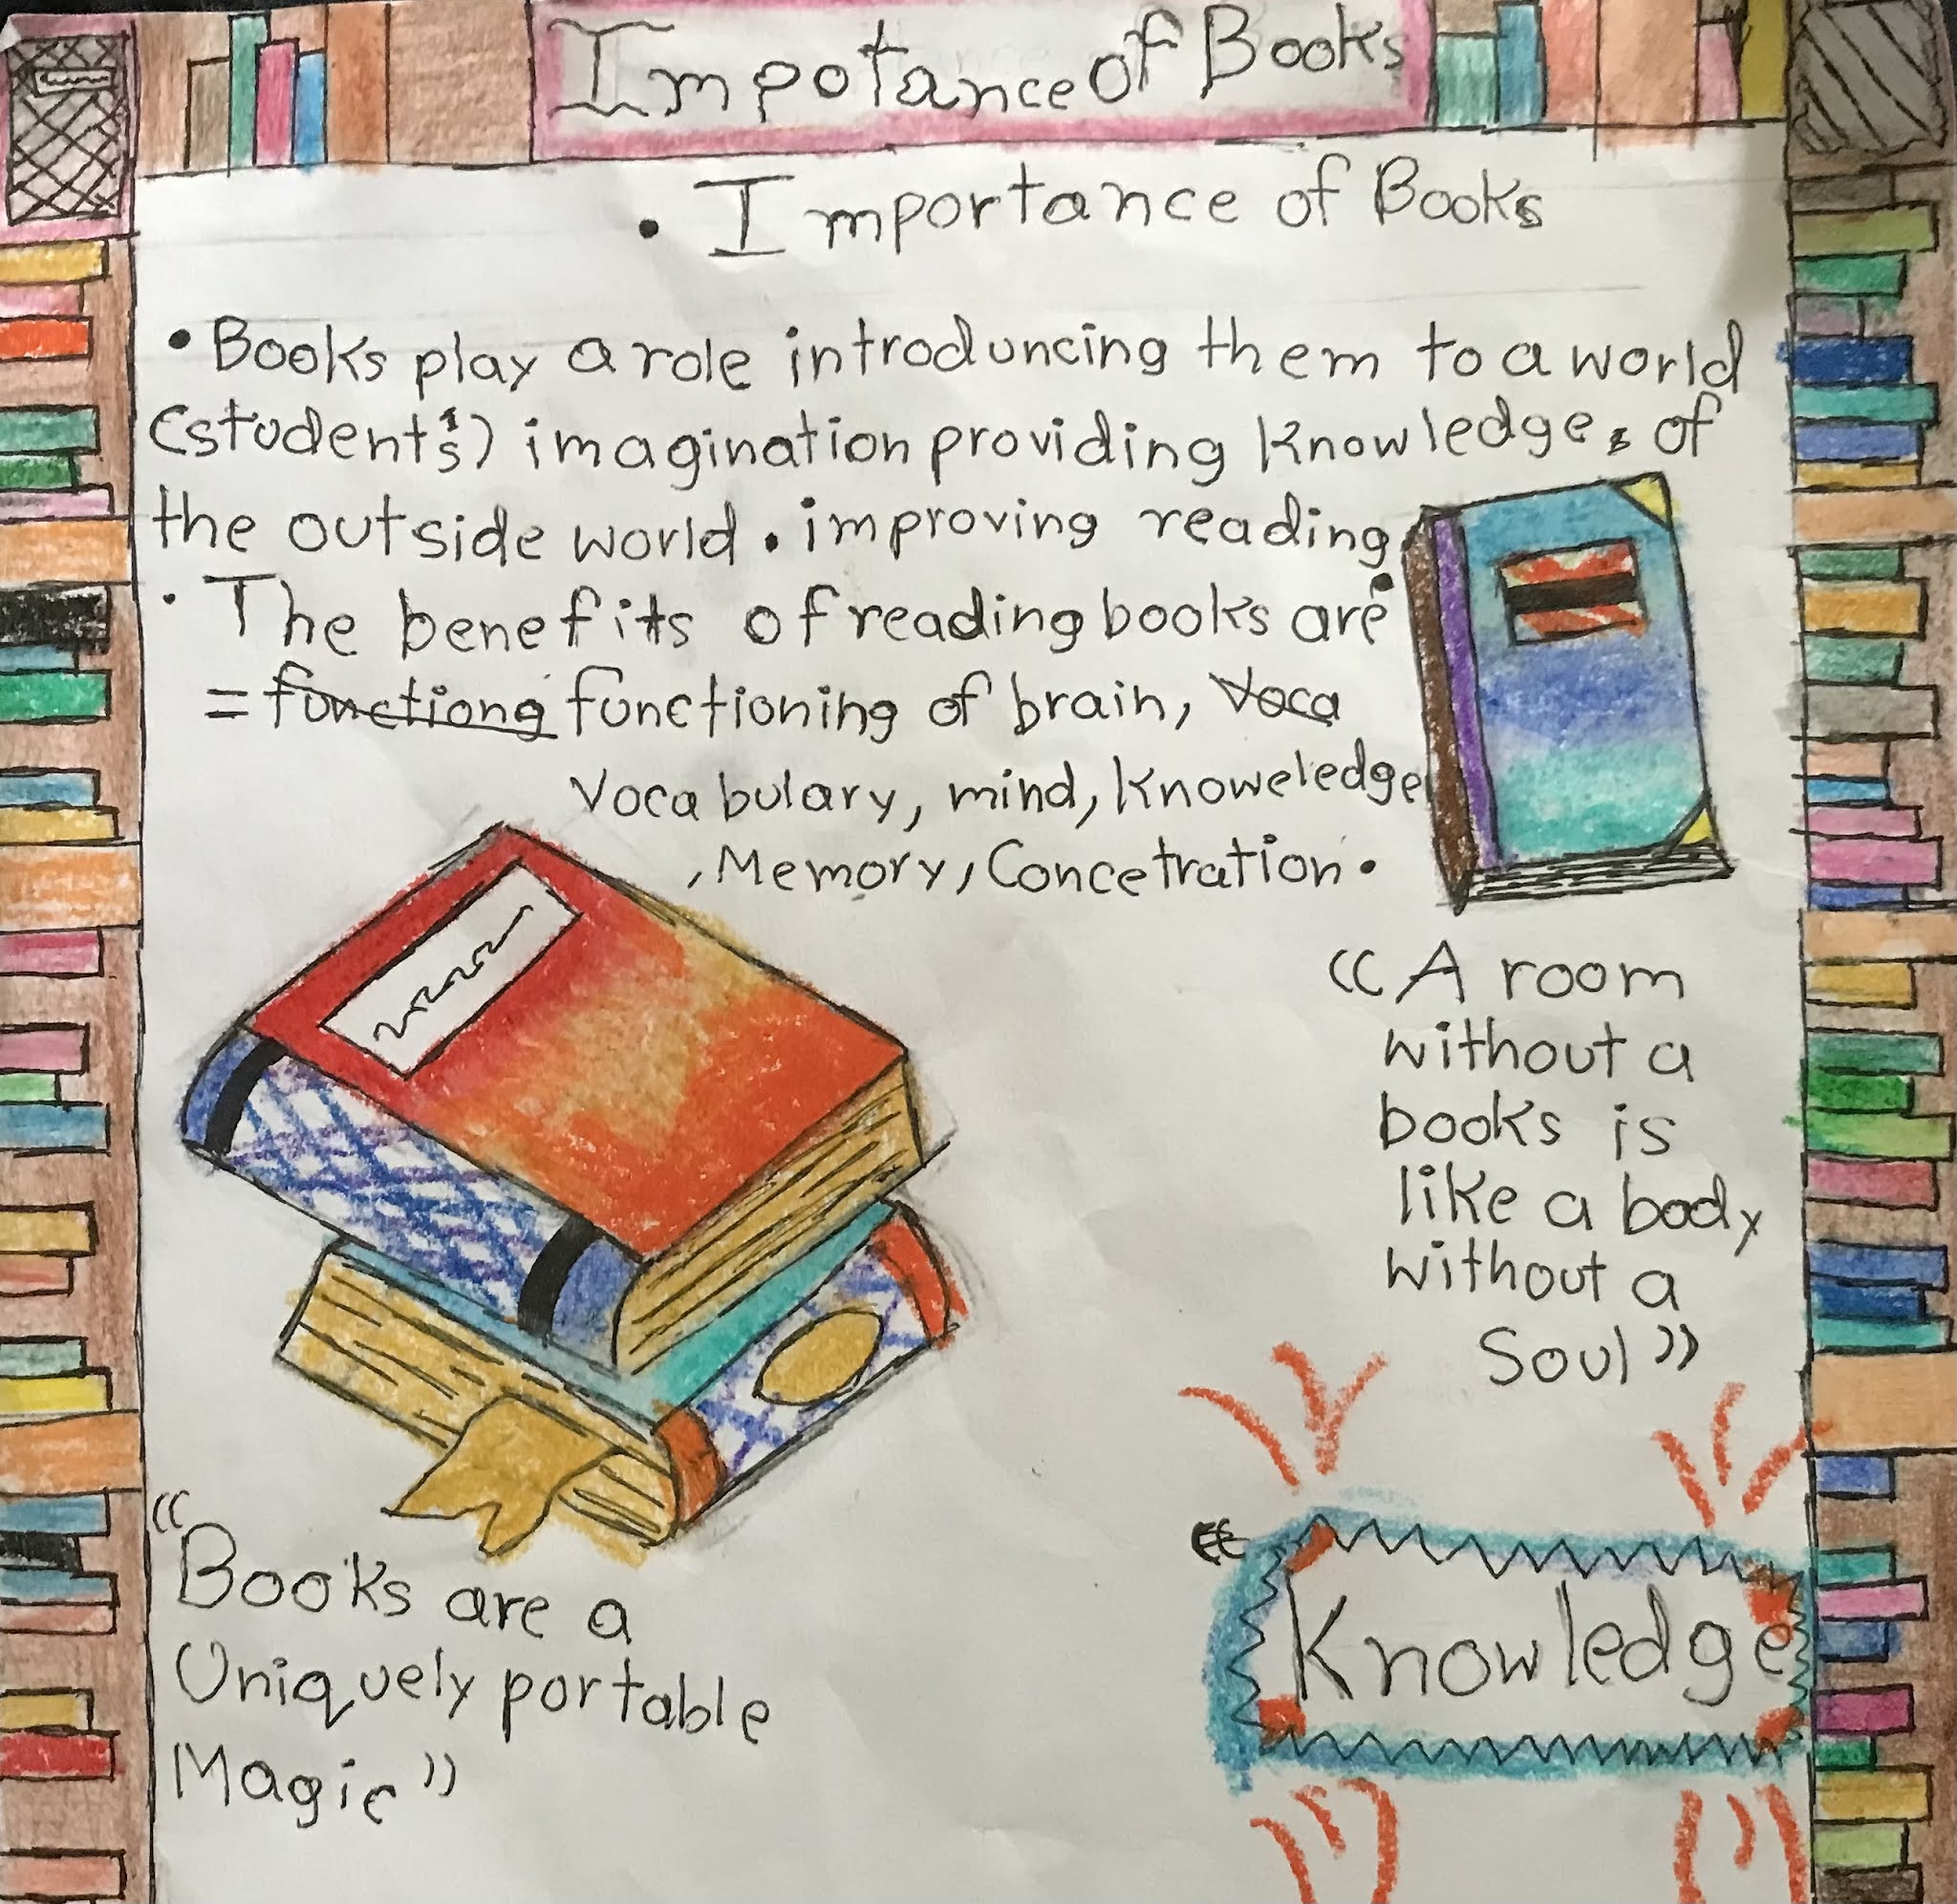 Impotance of Books
• Importance of Books
• Books play a role introduncing them to a world
(student's) imagination providing knowledge, of
the outside world. improving reading.
• The benefits of reading books are
= functiong functioning of brain, Voca
Vocabulary, mind, Knoweledge
, Memory, Concetration.
"A room
without a
books is
like a body
without a
Soul"
"Books are a
Uniquely portable
Magic"
"Knowledge